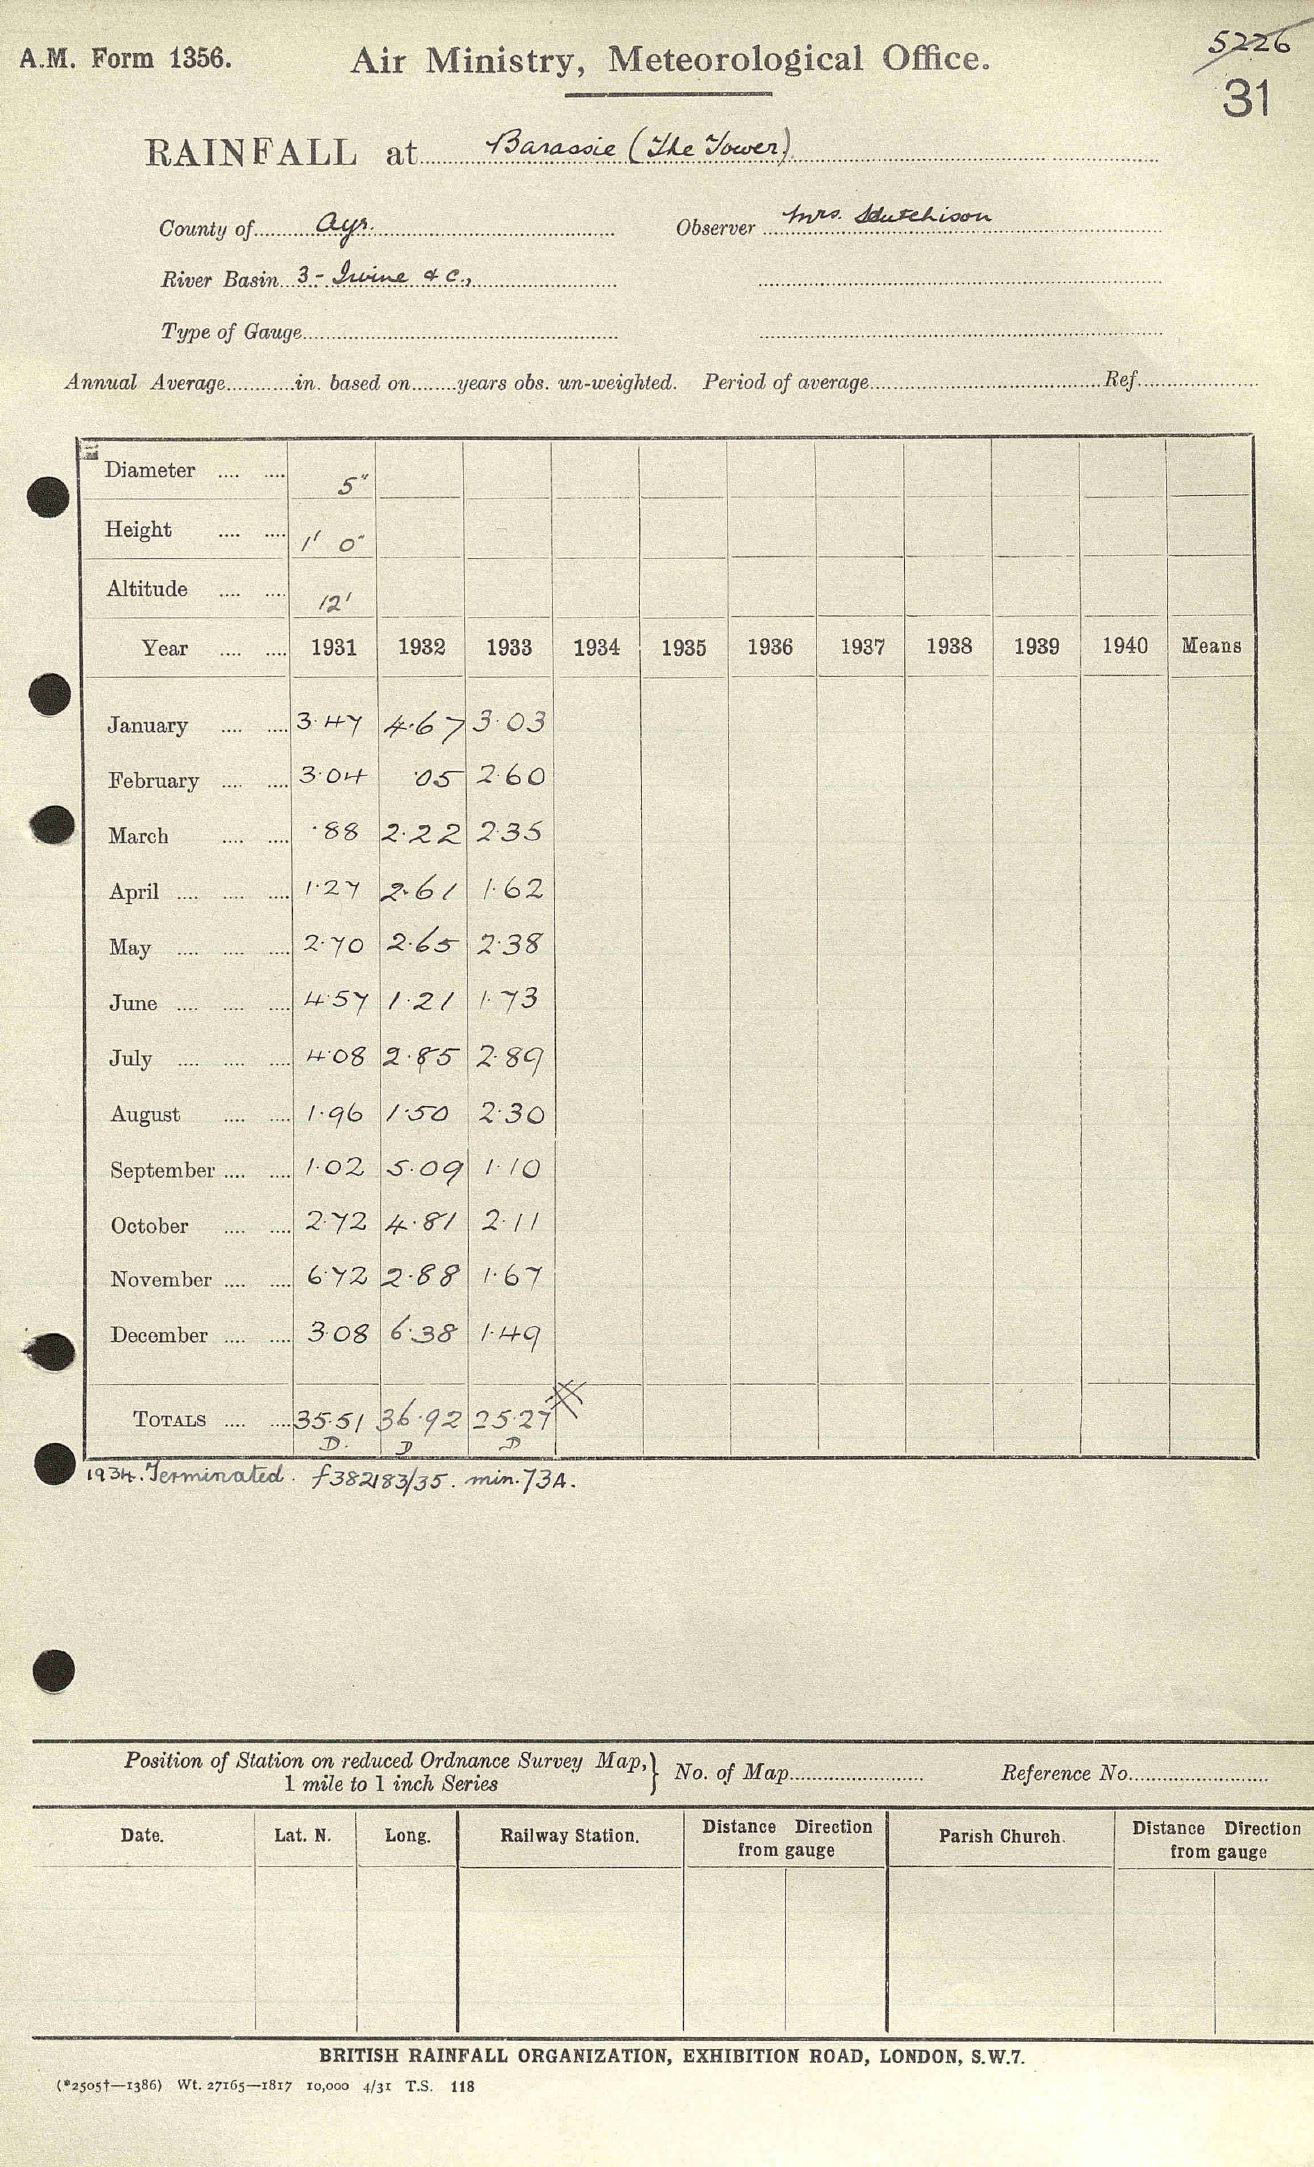 A.M. Form 1356.
Air Ministry, Meteorological Office.
5226
31
RAINFALL at Barassie (The Tower)
County of Ayr. Observer Mrs. Hutchison
River Basin 3- Irvine & c.,
Type of Gauge
Annual Average in. based on years obs. un-weighted. Period of average Ref.
Diameter 5"
Height 1' 0"
Altitude 12'
Year 1931 1932 1933 1934 1935 1936 1937 1938 1939 1940 Means
January 3.47 4.67 3.03
February 3.04 .05 2.60
March .88 2.22 2.35
April 1.27 2.61 1.62
May 2.70 2.65 2.38
June 4.57 1.21 1.73
July 4.08 2.85 2.89
August 1.96 1.50 2.30
September 1.02 5.09 1.10
October 2.72 4.81 2.11
November 6.72 2.88 1.67
December 3.08 6.38 1.49
TOTALS 35.51 36.92 25.27
D. D D
1934. Terminated. f382183/35. min. 73A.
Position of Station on reduced Ordnance Survey Map, 
1 mile to 1 inch Series } No. of Map Reference No.
Date. Lat. N. Long. Railway Station. Distance Direction from gauge Parish Church. Distance Direction from gauge
BRITISH RAINFALL ORGANIZATION, EXHIBITION ROAD, LONDON, S.W.7.
(*2505†—1386) Wt. 27165—1817 10,000 4/31 T.S. 118